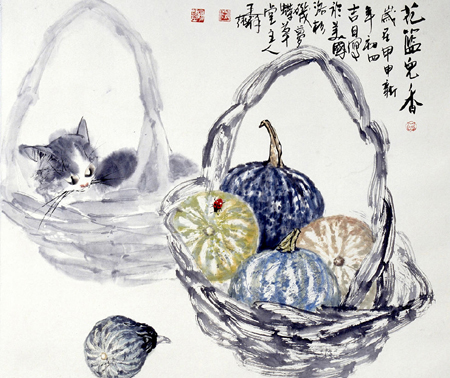 花籃兒香
歲在甲申新
年初四
吉日寫
於美國
洛杉
磯夢
蝶草
堂主人